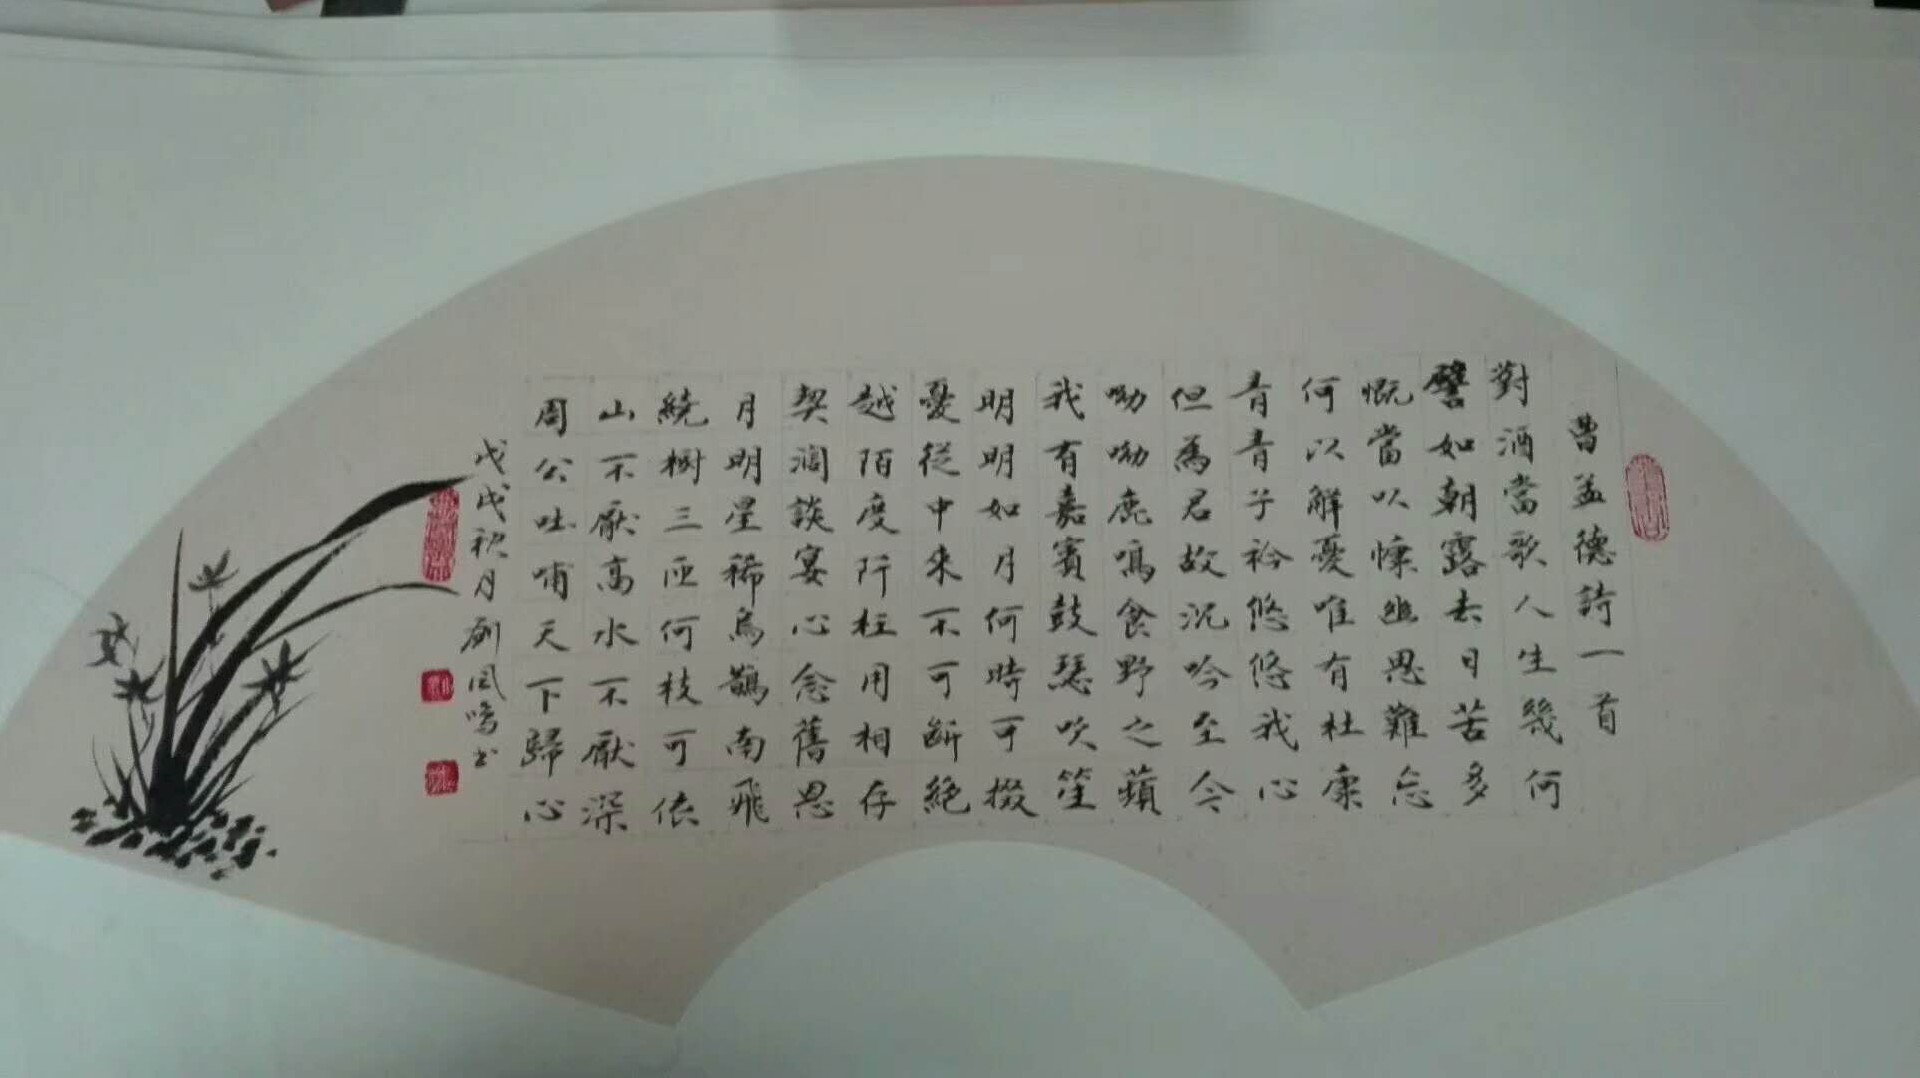 曹孟德詩一首
對酒當歌人生幾何
譬如朝露去日苦多
慨當以慷幽思難忘
何以解憂唯有杜康
青青子衿悠悠我心
但為君故沉吟至今
呦呦鹿鳴食野之蘋
我有嘉賓鼓瑟吹笙
明明如月何時可掇
憂從中来不可斷絕
越陌度阡枉用相存
契闊談宴心念舊恩
月明星稀烏鵲南飛
繞樹三匝何枝可依
山不厭高水不厭深
周公吐哺天下歸心
戊戌秋月劉風鳴书